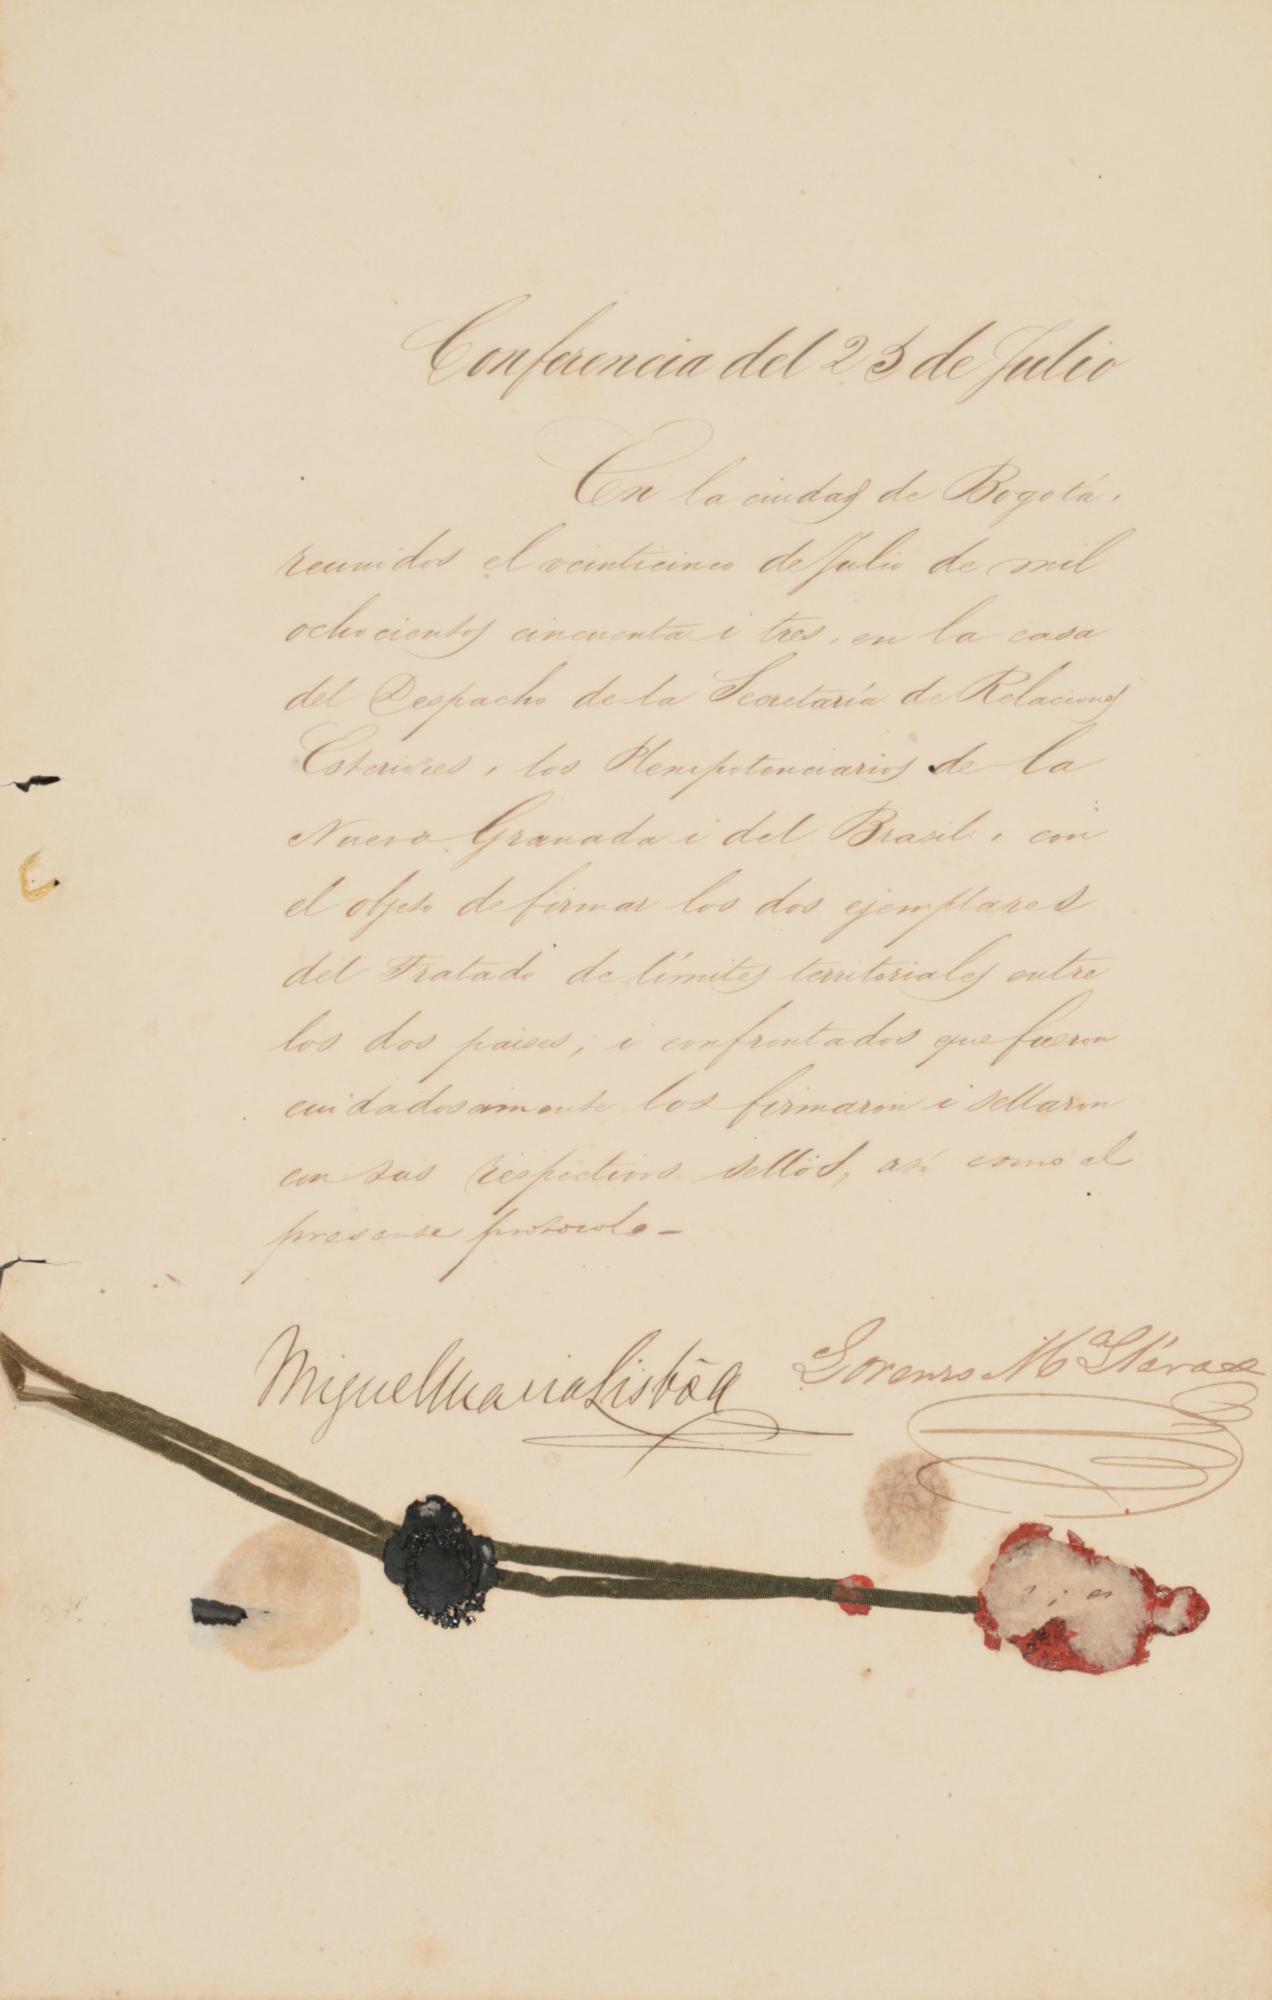 Conferencia del 25 de Julio
En la ciudad de Bogotá,
reunidos el veinticinco de Julio de mil
ochocientos cincuenta i tres, en la casa
del Despacho de la Secretaría de Relaciones
Esteriores, los Plenipotenciarios de la
Nueva Granada i del Brasil, con
el objeto de firmar los dos ejemplares
del Tratado de límites territoriales entre
los dos paises; i confrontados que fueron
cuidadosamente los firmaron i sellaron
con sus respectivos sellos, así como el
presente protocolo –
Miguel Maria Lisbõa Lorenzo Ma Lleras